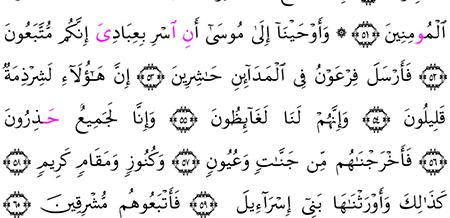 ٱلۡمُومِنِينَ ۝٥١ ۞ وَأَوۡحَيۡنَآ إِلَىٰ مُوسَىٰٓ أَنِ ٱسۡرِ بِعِبَادِيَ إِنَّكُم مُّتَّبَعُونَ
۝٥٢ فَأَرۡسَلَ فِرۡعَوۡنُ فِي ٱلۡمَدَآئِنِ حَٰشِرِينَ ۝٥٣ إِنَّ هَٰٓؤُلَآءِ لَشِرۡذِمَةٌ
قَلِيلُونَ ۝٥٤ وَإِنَّهُمۡ لَنَا لَغَآئِظُونَ ۝٥٥ وَإِنَّا لَجَمِيعٌ حَذِرُونَ
۝٥٦ فَأَخۡرَجۡنَٰهُم مِّن جَنَّٰتٖ وَعُيُونٖ ۝٥٧ وَكُنُوزٖ وَمَقَامٖ كَرِيمٖ ۝٥٨
كَذَٰلِكَ وَأَوۡرَثۡنَٰهَا بَنِيٓ إِسۡرَآءِيلَ ۝٥٩ فَأَتۡبَعُوهُم مُّشۡرِقِينَ ۝٦٠